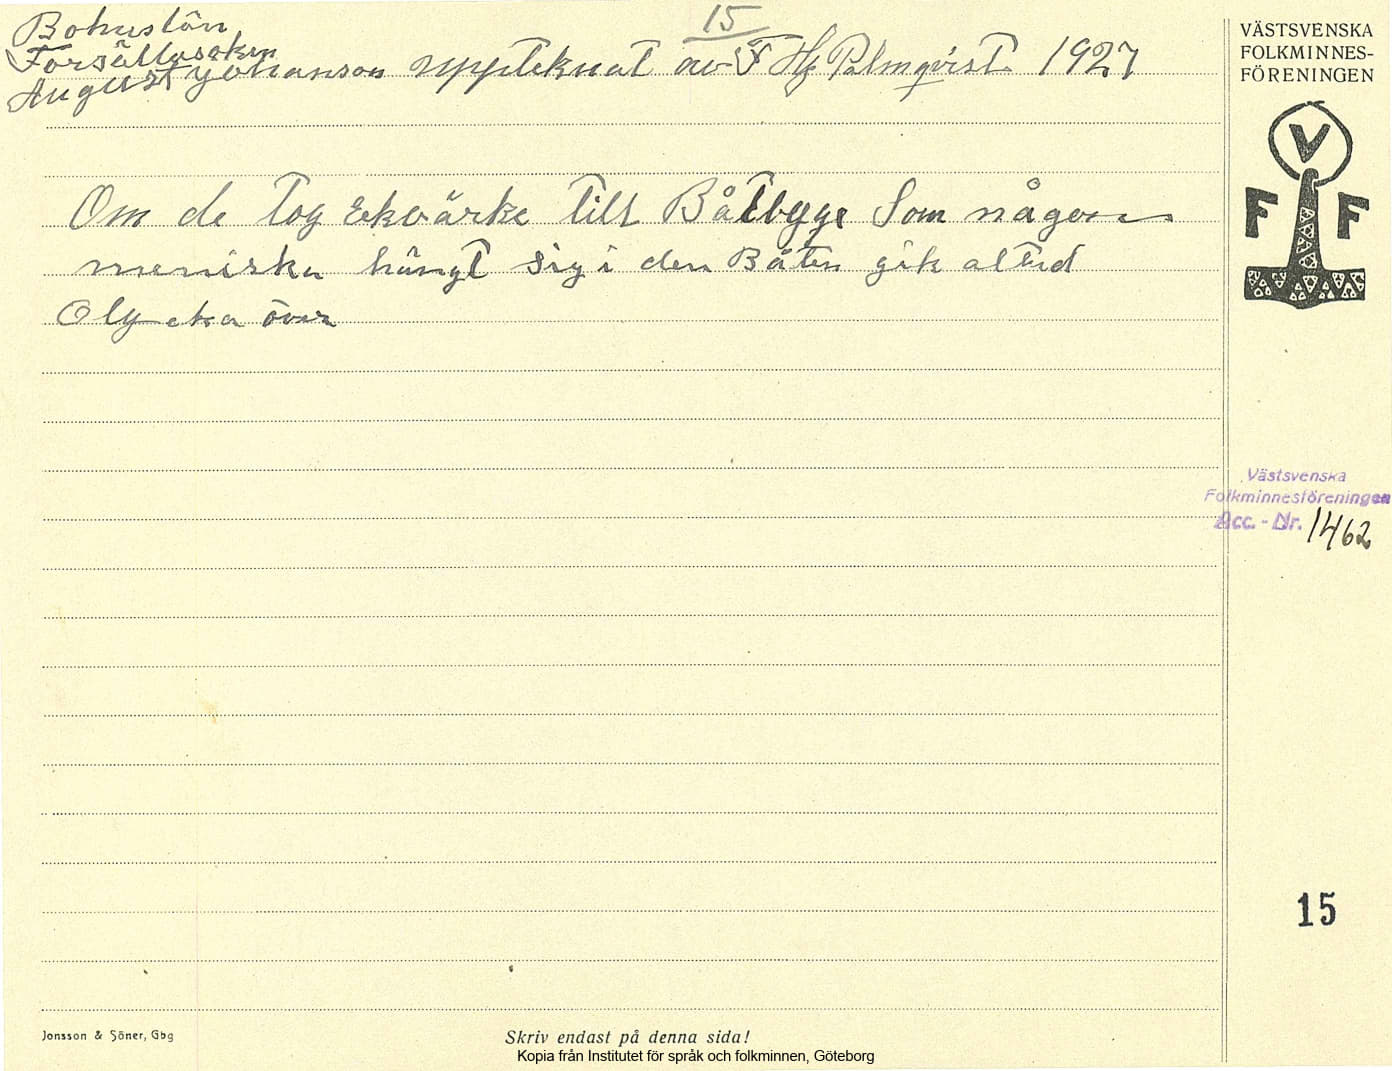 15
Bohuslän
Forsälla soken
August Johanson uppteknat av F Hj Palmqvist 1927
Om de tog Ekvärke till Båtbyge Som någon
meniska hängt sig i den Båten gik altid
Olycka över
VÄSTSVENSKA
FOLKMINNES-
FÖRENINGEN
V
F F
Västsvenska
Folkminnesföreningen
Acc. - Nr. 1462
15
Jonsson & Söner, Gbg
Skriv endast på denna sida!
Kopia från Institutet för språk och folkminnen, Göteborg